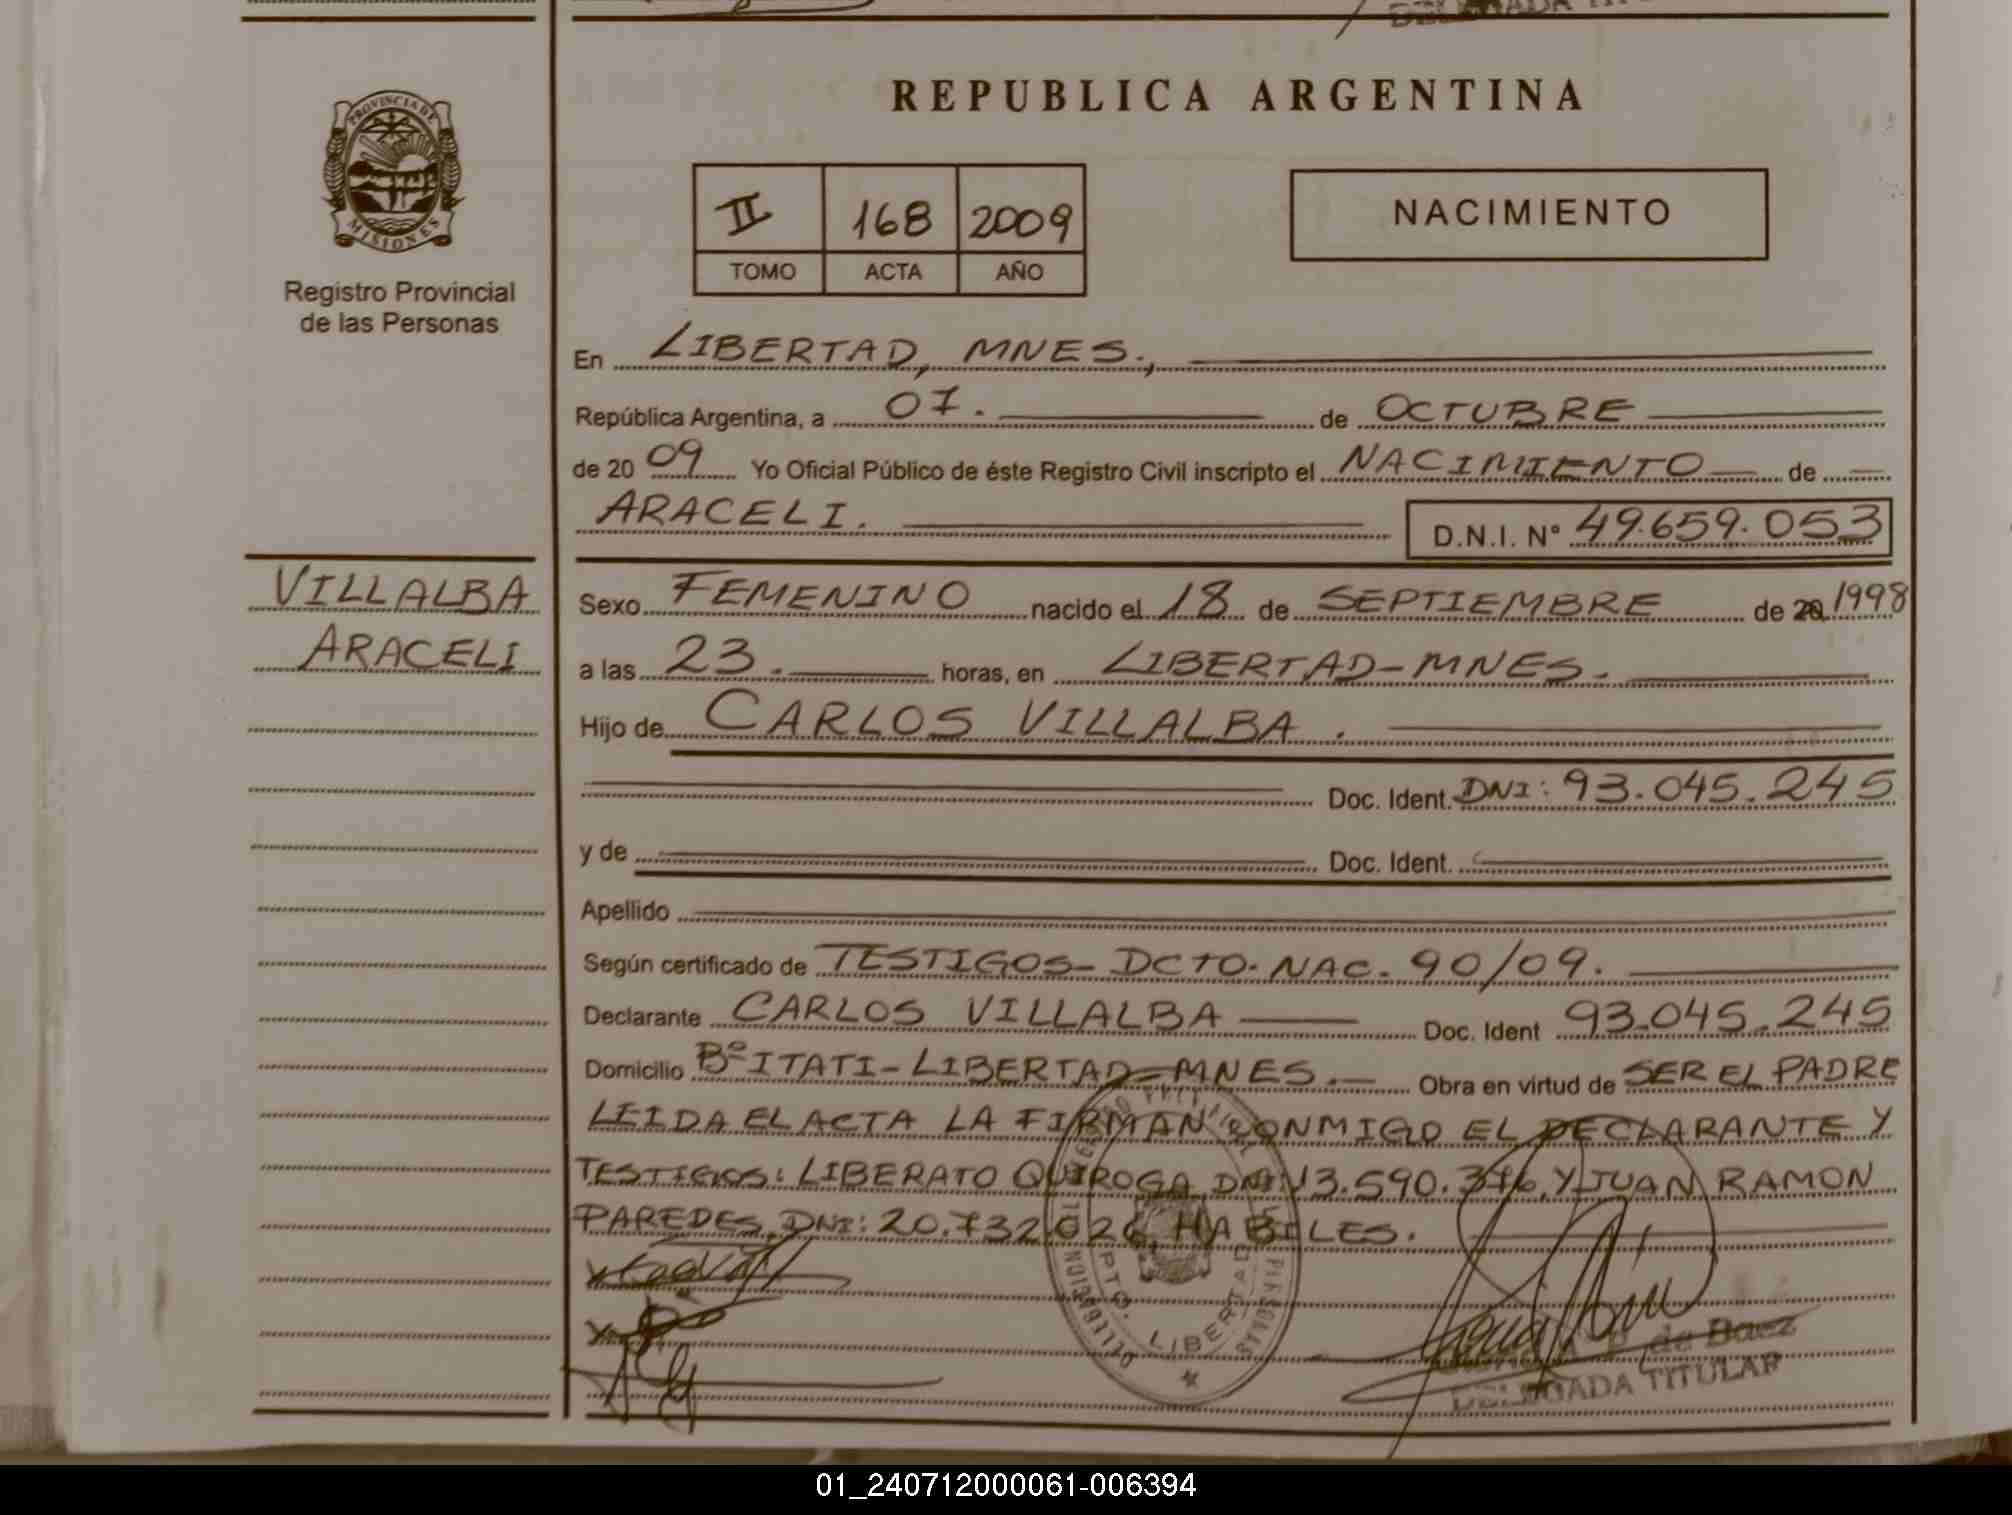 REPUBLICA ARGENTINA
PROVINCIA DE
MISIONES
Registro Provincial
de las Personas
II 168 2009
TOMO ACTA AÑO
NACIMIENTO
En LIBERTAD, MNES.,
República Argentina, a 07. de OCTUBRE
de 20 09 Yo Oficial Público de éste Registro Civil inscripto el NACIMIENTO de
ARACELI. D.N.I. Nº 49.659.053
VILLALBA
ARACELI
Sexo FEMENINO nacido el 18 de SEPTIEMBRE de 20 1998
a las 23. horas, en LIBERTAD-MNES.
Hijo de CARLOS VILLALBA.
Doc. Ident. DNI: 93.045.245
y de Doc. Ident.
Apellido
Según certificado de TESTIGOS- DCTO. NAC. 90/09.
Declarante CARLOS VILLALBA Doc. Ident 93.045.245
Domicilio Bº ITATI-LIBERTAD-MNES. Obra en virtud de SER EL PADRE
LEIDA EL ACTA LA FIRMAN CONMIGO EL DECLARANTE Y
TESTIGOS: LIBERATO QUIROGA, DNI: 13.590.376, Y JUAN RAMON
PAREDES, DNI: 20.732.026, HABILES.
DPTO. LIBERTAD
de Baez
DELEGADA TITULAR
01_240712000061-006394